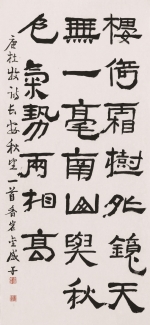 樓倚霜樹外鏡天
無一毫南山與秋
色氣勢兩相高
唐杜牧詩長安秋望一首